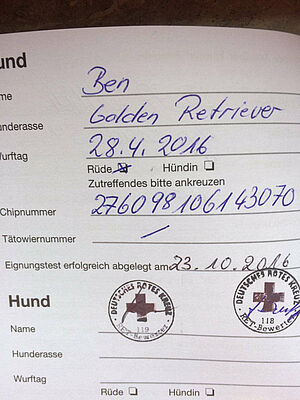 und
me Ben
underasse Golden Retriever
Wurftag 28.4.2016
Rüde ☒ Hündin ☐
Zutreffendes bitte ankreuzen
Chipnummer 276098106143070
Tätowiernummer /
Eignungstest erfolgreich abgelegt am 23.10.2016
Hund
DEUTSCHES ROTES KREUZ
119
RET-Bewerter
DEUTSCHES ROTES KREUZ
118
RET-Bewerter
Name
Hunderasse
Wurftag
Rüde ☐ Hündin ☐